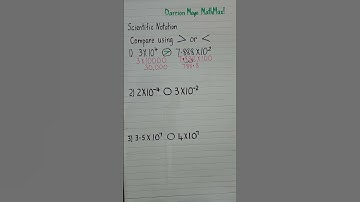 Darrion Mayo MathMad!
Scientific Notation
Compare using > or <
1) 3×10⁴ > 7.888×10²
3×10000
30,000 788.8
2) 2×10⁻³ ○ 3×10⁻²
3) 3.5×10⁷ ○ 4×10⁷